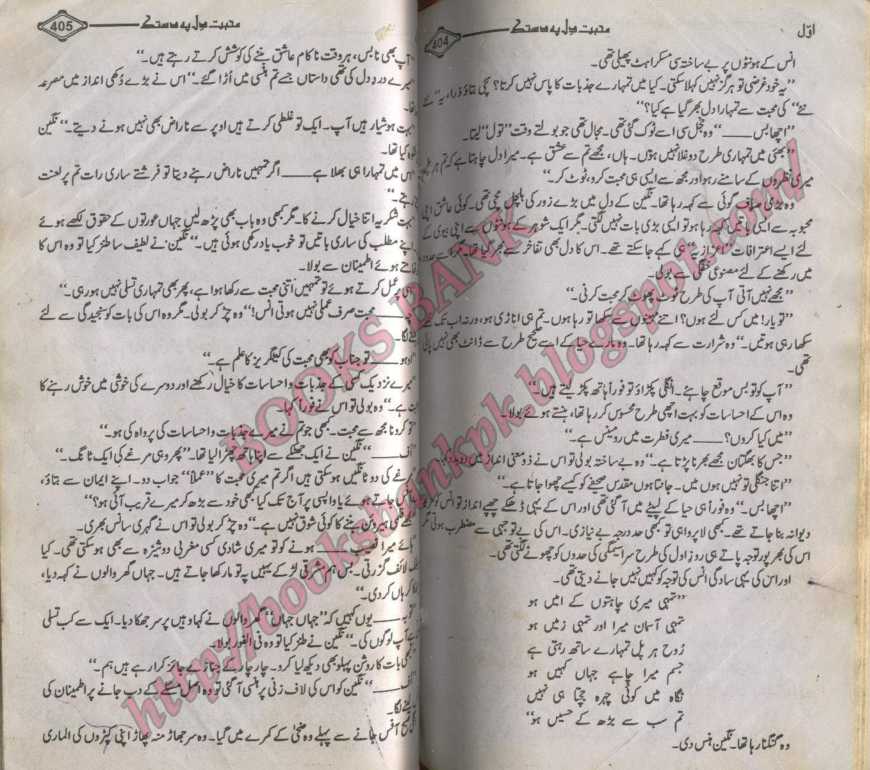 اول
محبت دل پہ دستک
404
انس کے ہونٹوں پر بے ساختہ سی مسکراہٹ پھیلی تھی۔
”یہ خود غرضی تو ہرگز نہیں کہلا سکتی۔ کیا میں تمہارے جذبات کا پاس نہیں کرتا؟ سچی بتاؤ ذرا، یہ“
کی محبت سے تمہارا دل بھر گیا ہے کیا؟“
”اچھا بس ____“ وہ خجل سی اسے ٹوک گئی تھی۔ مجال تھی جو بولتے وقت ”تول“ لیتا۔
”بھئی میں تمہاری طرح دوغلا نہیں ہوں۔ ہاں، مجھے تم سے عشق ہے۔ میرا دل چاہتا ہے کہ تم ہر
میری نظروں کے سامنے رہو اور مجھ سے ایسی ہی محبت کرو، ٹوٹ کر۔“
وہ بڑی صاف گوئی سے کہہ رہا تھا۔ نگین کے دل میں بڑے زور کی ہلچل مچی تھی۔ کوئی عاشق اپنی
محبوبہ سے ایسی باتیں کہہ رہا ہو تو ایسی بڑی بات نہیں لگتی۔ مگر ایک شوہر کے ہونٹوں سے اپنی بیوی کے
لئے ایسے اعترافات ”اعزازیہ“ ہی کہے جا سکتے تھے۔ اس کا دل بھی تفاخر سے بھر گیا تھا۔
میں رکھنے کے لئے مصنوعی خفگی سے بولی۔
”مجھے نہیں آتی آپ کی طرح ٹوٹ پھوٹ کر محبت کرنی۔“
”تو یار! میں کس لئے ہوں؟ اتنے مہینوں سے سکھا تو رہا ہوں۔ تم ہی اناڑی ہو، ورنہ اب تک
سکھا رہی ہوتیں۔“ وہ شرارت سے کہہ رہا تھا۔ وہ مارے حیا کے اسے صحیح طرح سے ڈانٹ بھی نہیں پائی
تھی۔
”آپ کو تو بس موقع چاہئے۔ انگلی پکڑاؤ تو فوراً ہاتھ پکڑ لیتے ہیں۔“
وہ اس کے احساسات کو بہت اچھی طرح محسوس کر رہا تھا، ہنستے ہوئے بولا۔
”میں کیا کروں؟ ____ میری فطرت میں رومینس ہے۔“
”جس کا بھگتان مجھے بھرنا پڑتا ہے۔“ وہ بے ساختہ بولی تو انس نے ذومعنی انداز میں
”اتنا جنگلی تو نہیں ہوں میں۔ جانتا ہوں مقدس صحیفے کو کیسے چھوا جاتا ہے۔“
”اچھا بس۔“ وہ فوراً ہی حیا کے لپیٹے میں آ گئی تھی اور اس کے یہی ڈھکے چھپے انداز تو انس کو
دیوانہ بنا جاتے تھے۔ کبھی لاپروائی تو کبھی حد درجہ بے نیازی۔ اس کی بے توجہی سے مضطرب ہوتی مگر
اس کی بھرپور توجہ پاتے ہی روز اول کی طرح سراسیمگی کی حدوں کو چھونے لگتی تھی۔
اور اس کی یہی سادگی انس کی توجہ کو کہیں نہیں جانے دیتی تھی۔
”تمہی میری چاہتوں کے امیں ہو
تمہی آسمان میرا اور تمہی زمیں ہو
روح ہر پل تمہارے ساتھ رہتی ہے
جسم میرا چاہے جہاں کہیں ہو
نگاہ میں کوئی چہرہ جچتا ہی نہیں
تم سب سے بڑھ کے حسیں ہو“
وہ گنگنا رہا تھا۔ نگین ہنس دی۔
محبت دل پہ دستک
405
”آپ بھی نا بس، ہر وقت ناکام عاشق بننے کی کوشش کرتے رہتے ہیں۔“
”میرے درد دل کی تھی داستاں جسے تم ہنسی میں اڑا گئے۔“ اس نے بڑے دکھی انداز میں مصرعہ
”بہت ہوشیار ہیں آپ۔ ایک تو غلطی کرتے ہیں اوپر سے ناراض بھی نہیں ہونے دیتے۔“ نگین
کیا تھا۔
میں تمہارا ہی بھلا ہے ____ اگر تمہیں ناراض رہنے دیتا تو فرشتے ساری رات تم پر لعنت
رہتے۔“
”بہت شکریہ اتنا خیال کرنے کا۔ مگر کبھی وہ باب بھی پڑھ لیں جہاں عورتوں کے حقوق لکھے ہوئے
اپنے مطلب کی ساری باتیں تو خوب یاد رکھی ہوئی ہیں۔“ نگین نے لطیف سا طنز کیا تو وہ اس کا
ہوئے اطمینان سے بولا۔
عمل کرتے ہوئے تو تمہیں اتنی محبت سے رکھا ہوا ہے، پھر بھی تمہاری تسلی نہیں ہو رہی۔“
____ محبت صرف عملی نہیں ہوتی انس!“ وہ چڑ کر بولی۔ مگر وہ اس کی بات کو سنجیدگی سے لئے
لگا۔
”اوہو ____ تو جناب کو بھی محبت کی کیٹگریز کا علم ہے۔“
”میرے نزدیک کسی کے جذبات و احساسات کا خیال رکھنے اور دوسرے کی خوشی میں خوش رہنے کا
ہے۔“ وہ بولی تو انس نے فوراً کہا۔
”تو کرو نا مجھ سے محبت۔ کبھی جو تم نے میرے جذبات و احساسات کی پرواہ کی ہو۔“
”اف ____“ نگین نے ایک جھٹکے سے اپنا ہاتھ چھڑا لیا تھا۔ ”پھر وہی مرغے کی ایک ٹانگ۔“
”مرغے کی دو ٹانگیں ہو سکتی ہیں اگر تم میری محبت کا ”عملاً“ جواب دو۔ اپنے ایمان سے بتاؤ،
جاتے ہوئے یا واپسی پر آج تک کیا کبھی خود سے بڑھ کر میرے قریب آئی ہو؟“
ہیروئن بننے کا کوئی شوق نہیں ہے۔“ وہ چڑ کر بولی تو انس نے گہری سانس بھری۔
”ہائے میرا نصیب ____ ہونے کو تو میری شادی کسی مغربی دوشیزہ سے بھی ہو سکتی تھی۔ کیا
لائف گزرتی۔ بس ہم مشرقی لڑکے یہیں پہ تو مار کھا جاتے ہیں۔ جہاں گھر والوں نے کہہ دیا،
ہاں کر دی۔“
____ یوں کہیں کہ ”جہاں جہاں“ گھر والوں نے کہا وہیں پر سر جھکا دیا۔ ایک سے کب تسلی
آپ لوگوں کی۔“ نگین نے طنز کیا تو وہ فی الفور بولا۔
”کبھی بات کا روشن پہلو بھی دیکھ لیا کرو۔ چار چار کے جنازے جائز کرا رہے ہیں ہم۔“
”اف ____“ نگین کو اس کی لاف زنی پر ہنسی آ گئی تو وہ اصل مسئلے کے دب جانے پر اطمینان کی
لینے لگا۔
صبح آفس جانے سے پہلے وہ ضحیٰ کے کمرے میں گیا۔ وہ سر جھاڑ منہ پھاڑ اپنی کپڑوں کی الماری
BOOKS BANK
http//booksbankpk.blogspot.com/